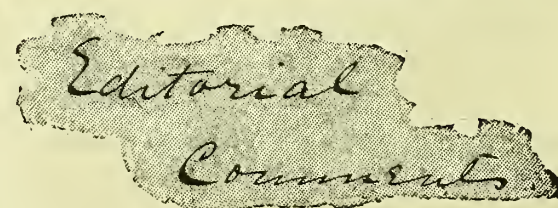 Editorial
Comments.